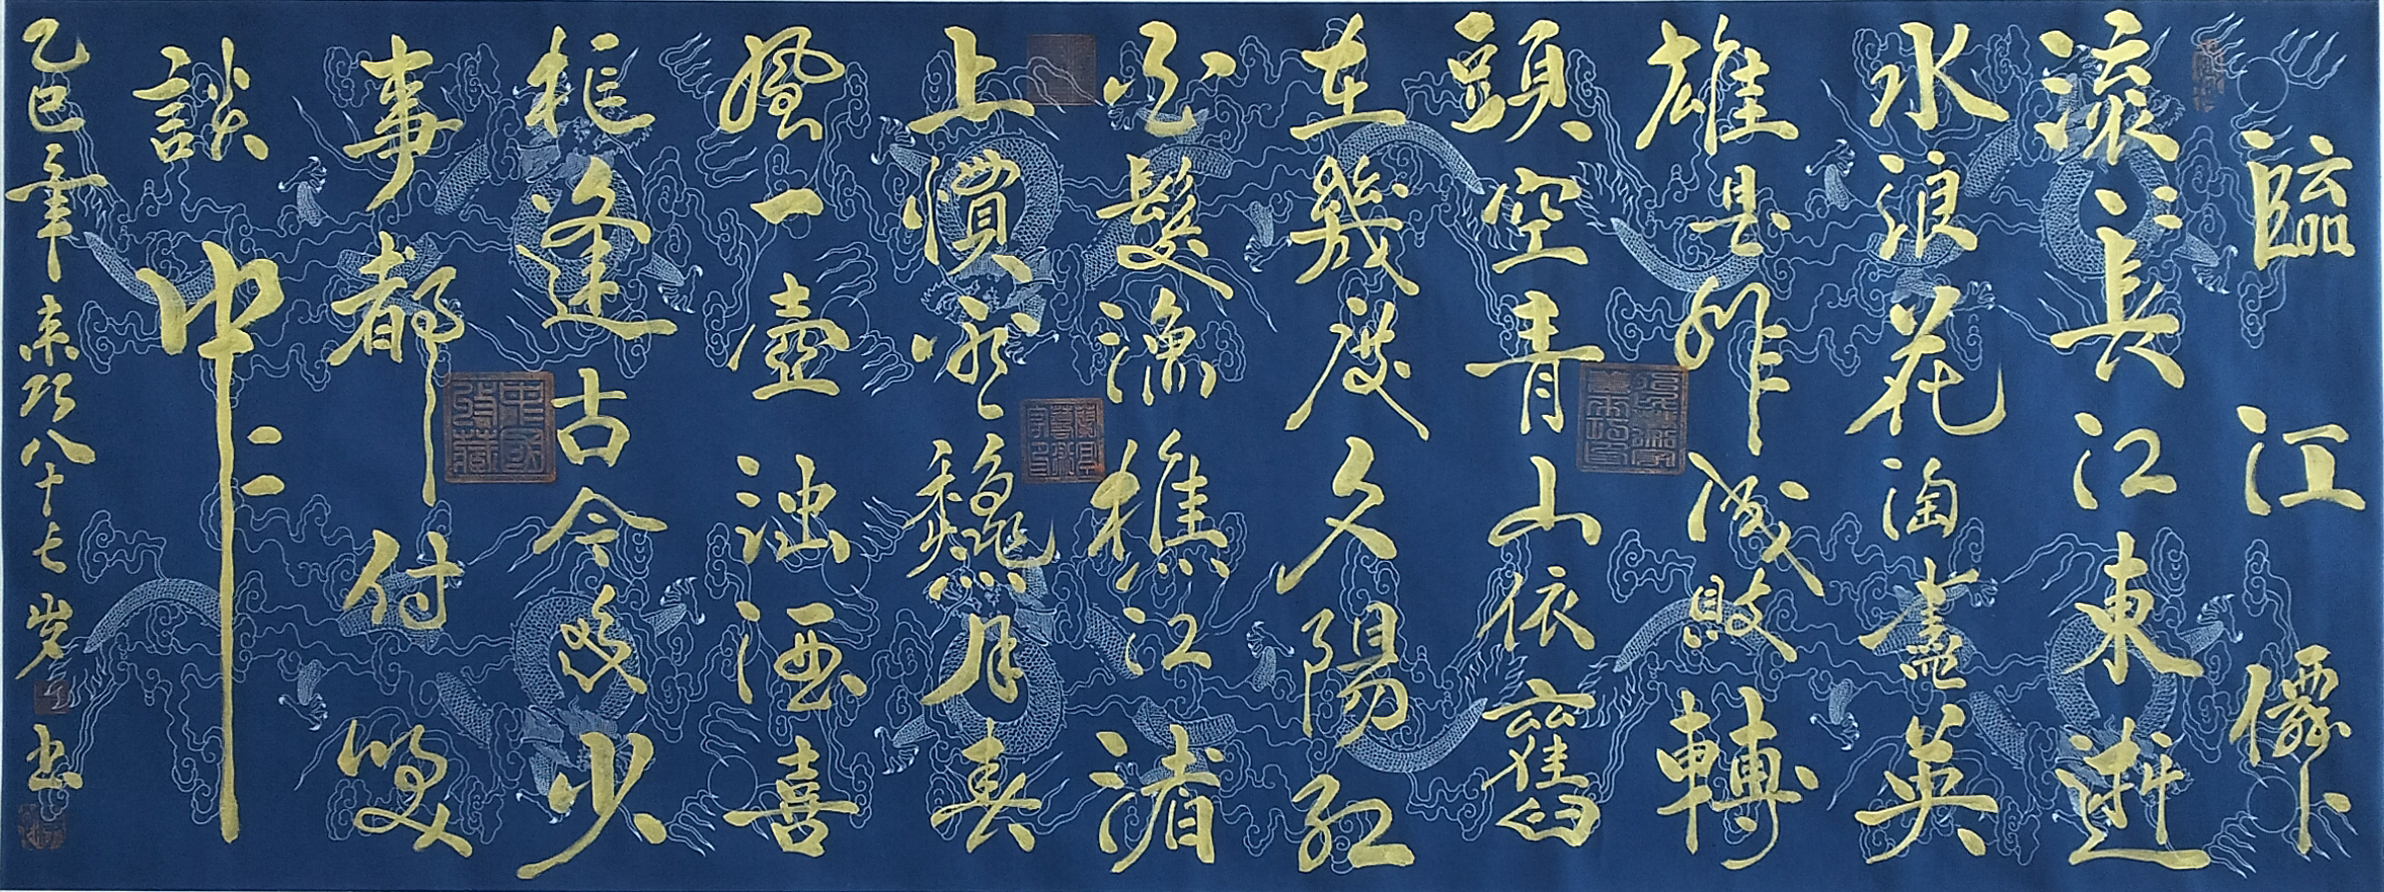 臨江僊
滚〻長江東逝
水浪花淘盡英
雄是非成敗轉
頭空青山依舊
在幾度夕陽紅
白髮漁樵江渚
上慣看龝月春
風一壺濁酒喜
相逢古今多少
事都付笑
談中
乙巳年八十七岁书